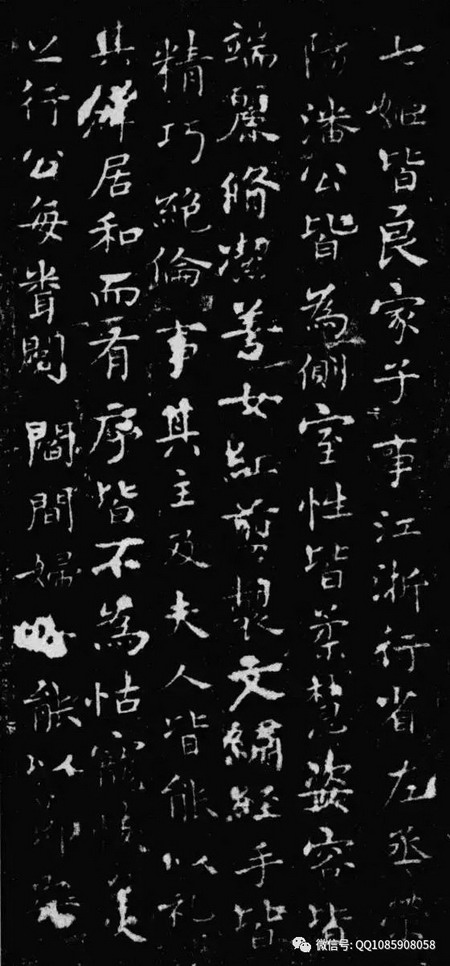 七姬皆良家子事江浙行省左丞榮
陽潘公皆為側室性皆柔慧姿容皆
端麗脩潔善女紅剪製文繡經手皆
精巧絕倫事其主及夫人皆能以礼
其羣居和而有序皆不為怙寵忮美
之行公每聞閭閻間婦能以
微信号: QQ1085908058